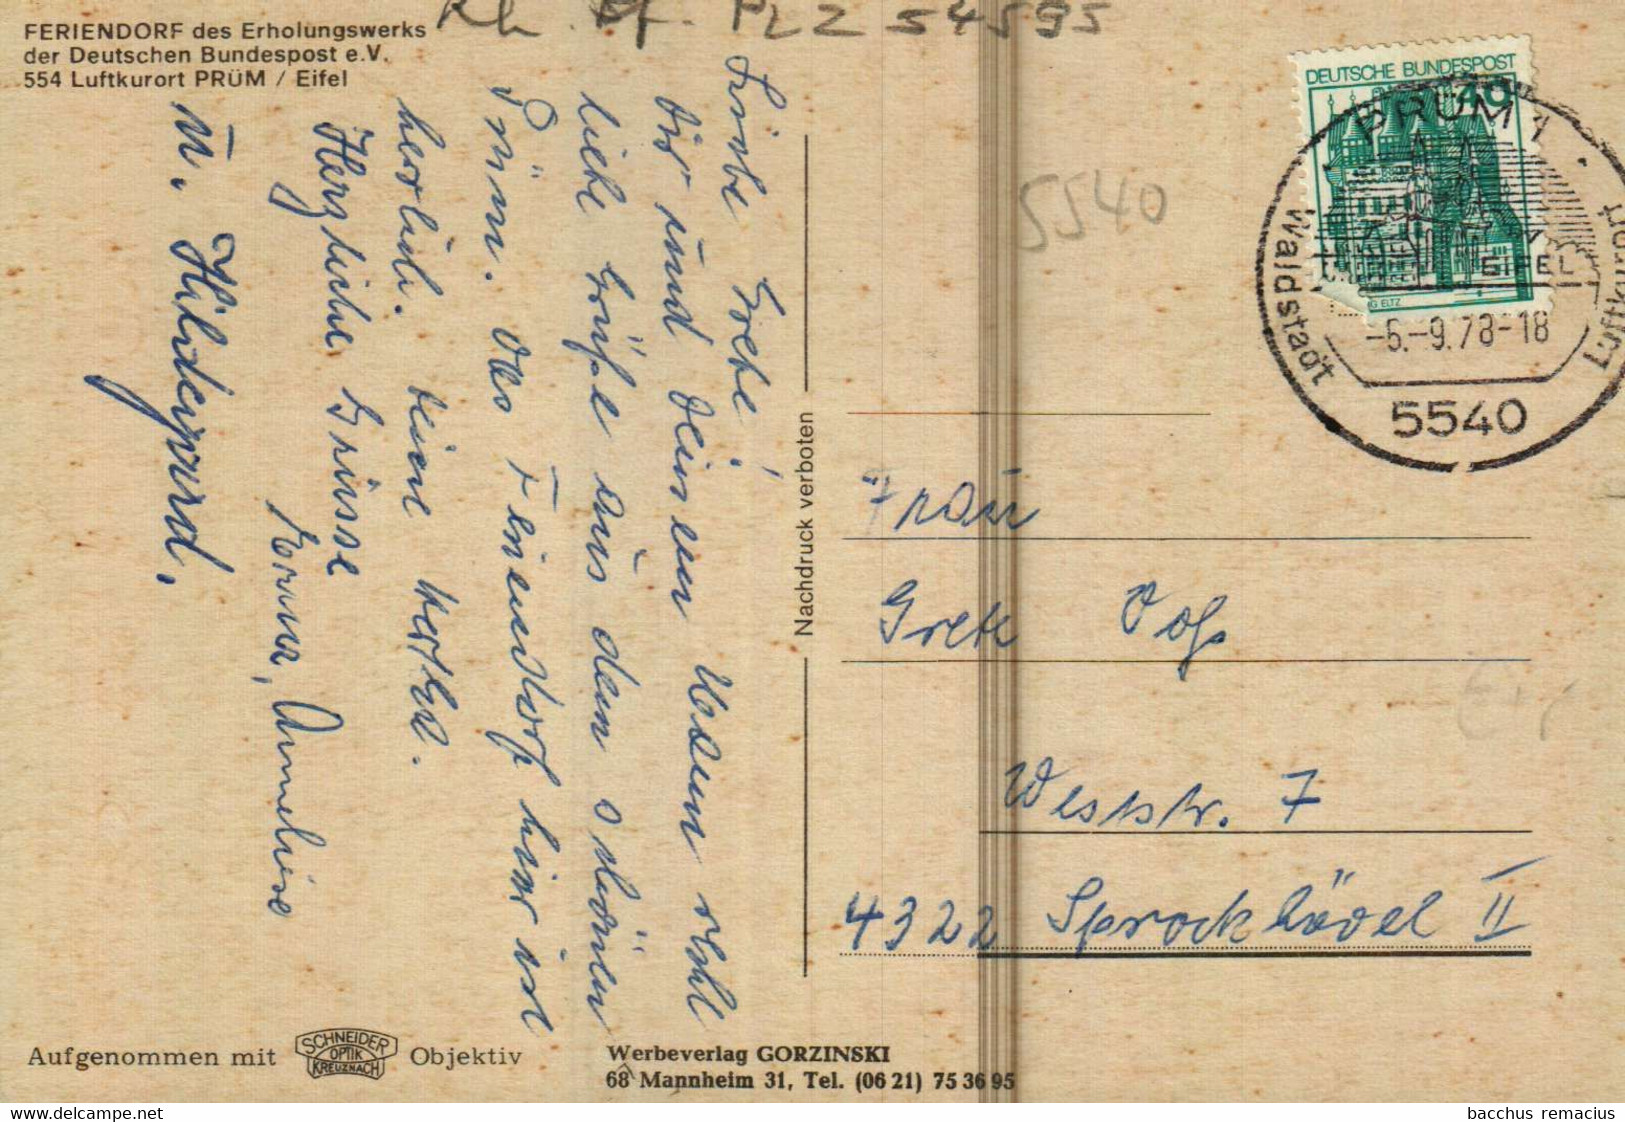 FERIENDORF des Erholungswerks
der Deutschen Bundespost e.V.
554 Luftkurort PRÜM / Eifel
Rh. Pf. PLZ 54595
Liebe Grete!
Dir und deinem
liebe Grüße aus dem schönen
Prüm. Das Feriendorf hier ist
herrlich.
Herzliche Grüsse
Anneliese
u. Hildegard.
Nachdruck verboten
5540
DEUTSCHE BUNDESPOST
40
G ELTZ
PRÜM 1
EIFEL
Waldstadt
Luftkurort
-6.-9.78-18
5540
Frau
Grete Voß
Weststr. 7
4322 Sprockhövel II
Aufgenommen mit SCHNEIDER OPTIK KREUZNACH Objektiv
Werbeverlag GORZINSKI
68 Mannheim 31, Tel. (06 21) 75 36 95
delcampe.net
bacchus remacius